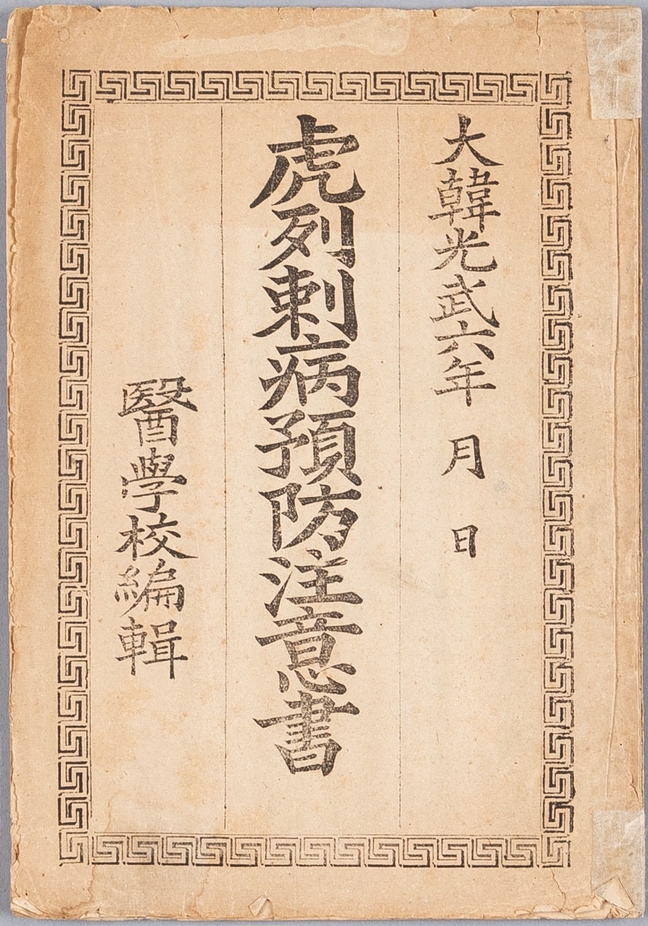 大韓光武六年 月 日
虎列刺病預防注意書
醫學校編輯